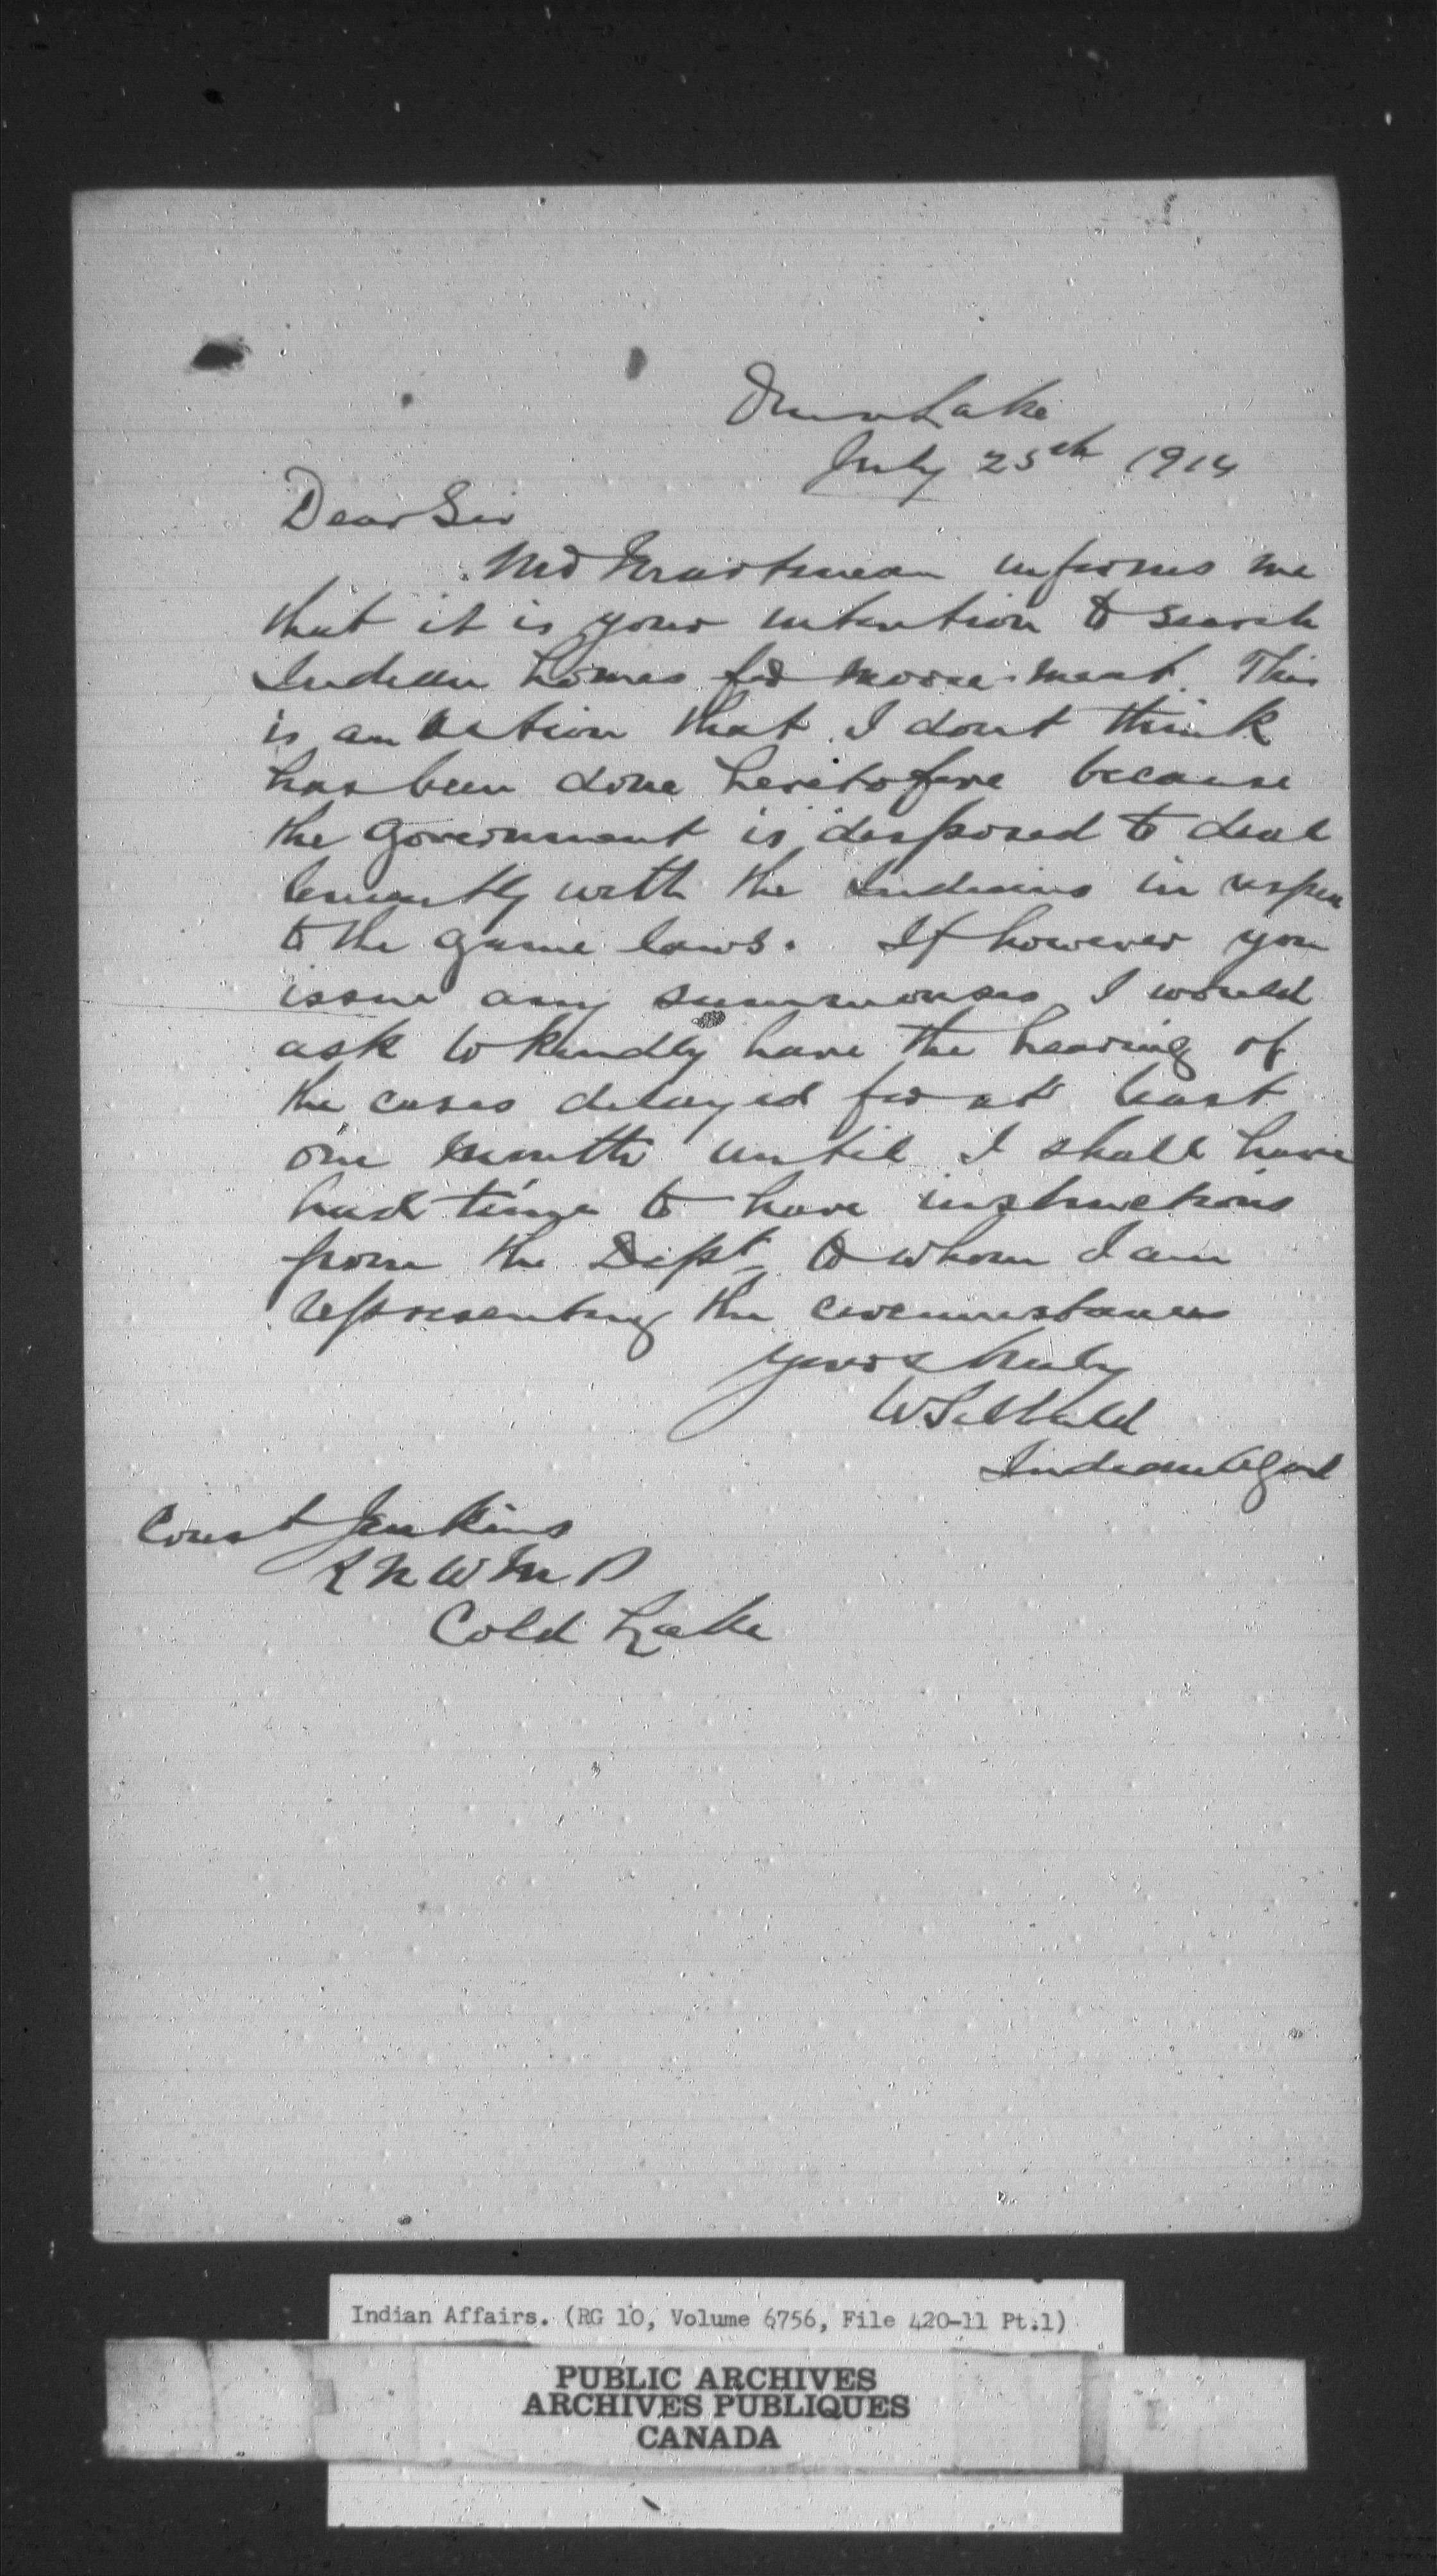 Lake
July 25th 1914
Dear Sir
Mr informs me
that it is your intention to search
Indian homes for moose meat. This
is an action that I dont think
has been done heretofore because
the Government is desposed to deal
leniently with the Indians in respect
to the game laws. If however you
issue any summonses I would
ask to kindly have the hearing of
the cases delayed for at least
one month until I shall have
had time to have instructions
from the Dept to whom I am
representing the circumstances
Yours truly
Indian Agent
Const Jenkins
R N W M P
Cold Lake
Indian Affairs. (RG 10, Volume 6756, File 420-11 Pt.1)
PUBLIC ARCHIVES
ARCHIVES PUBLIQUES
CANADA